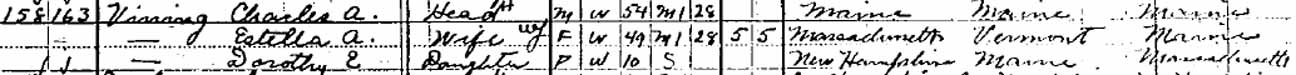 158 163 Vining Charles A. Head M W 54 M1 28 Maine Maine Maine
— Estella A. Wife F W 49 M1 28 5 5 Massachusetts Vermont Maine
— Dorothy E Daughter F W 10 S New Hampshire Maine Massachusetts